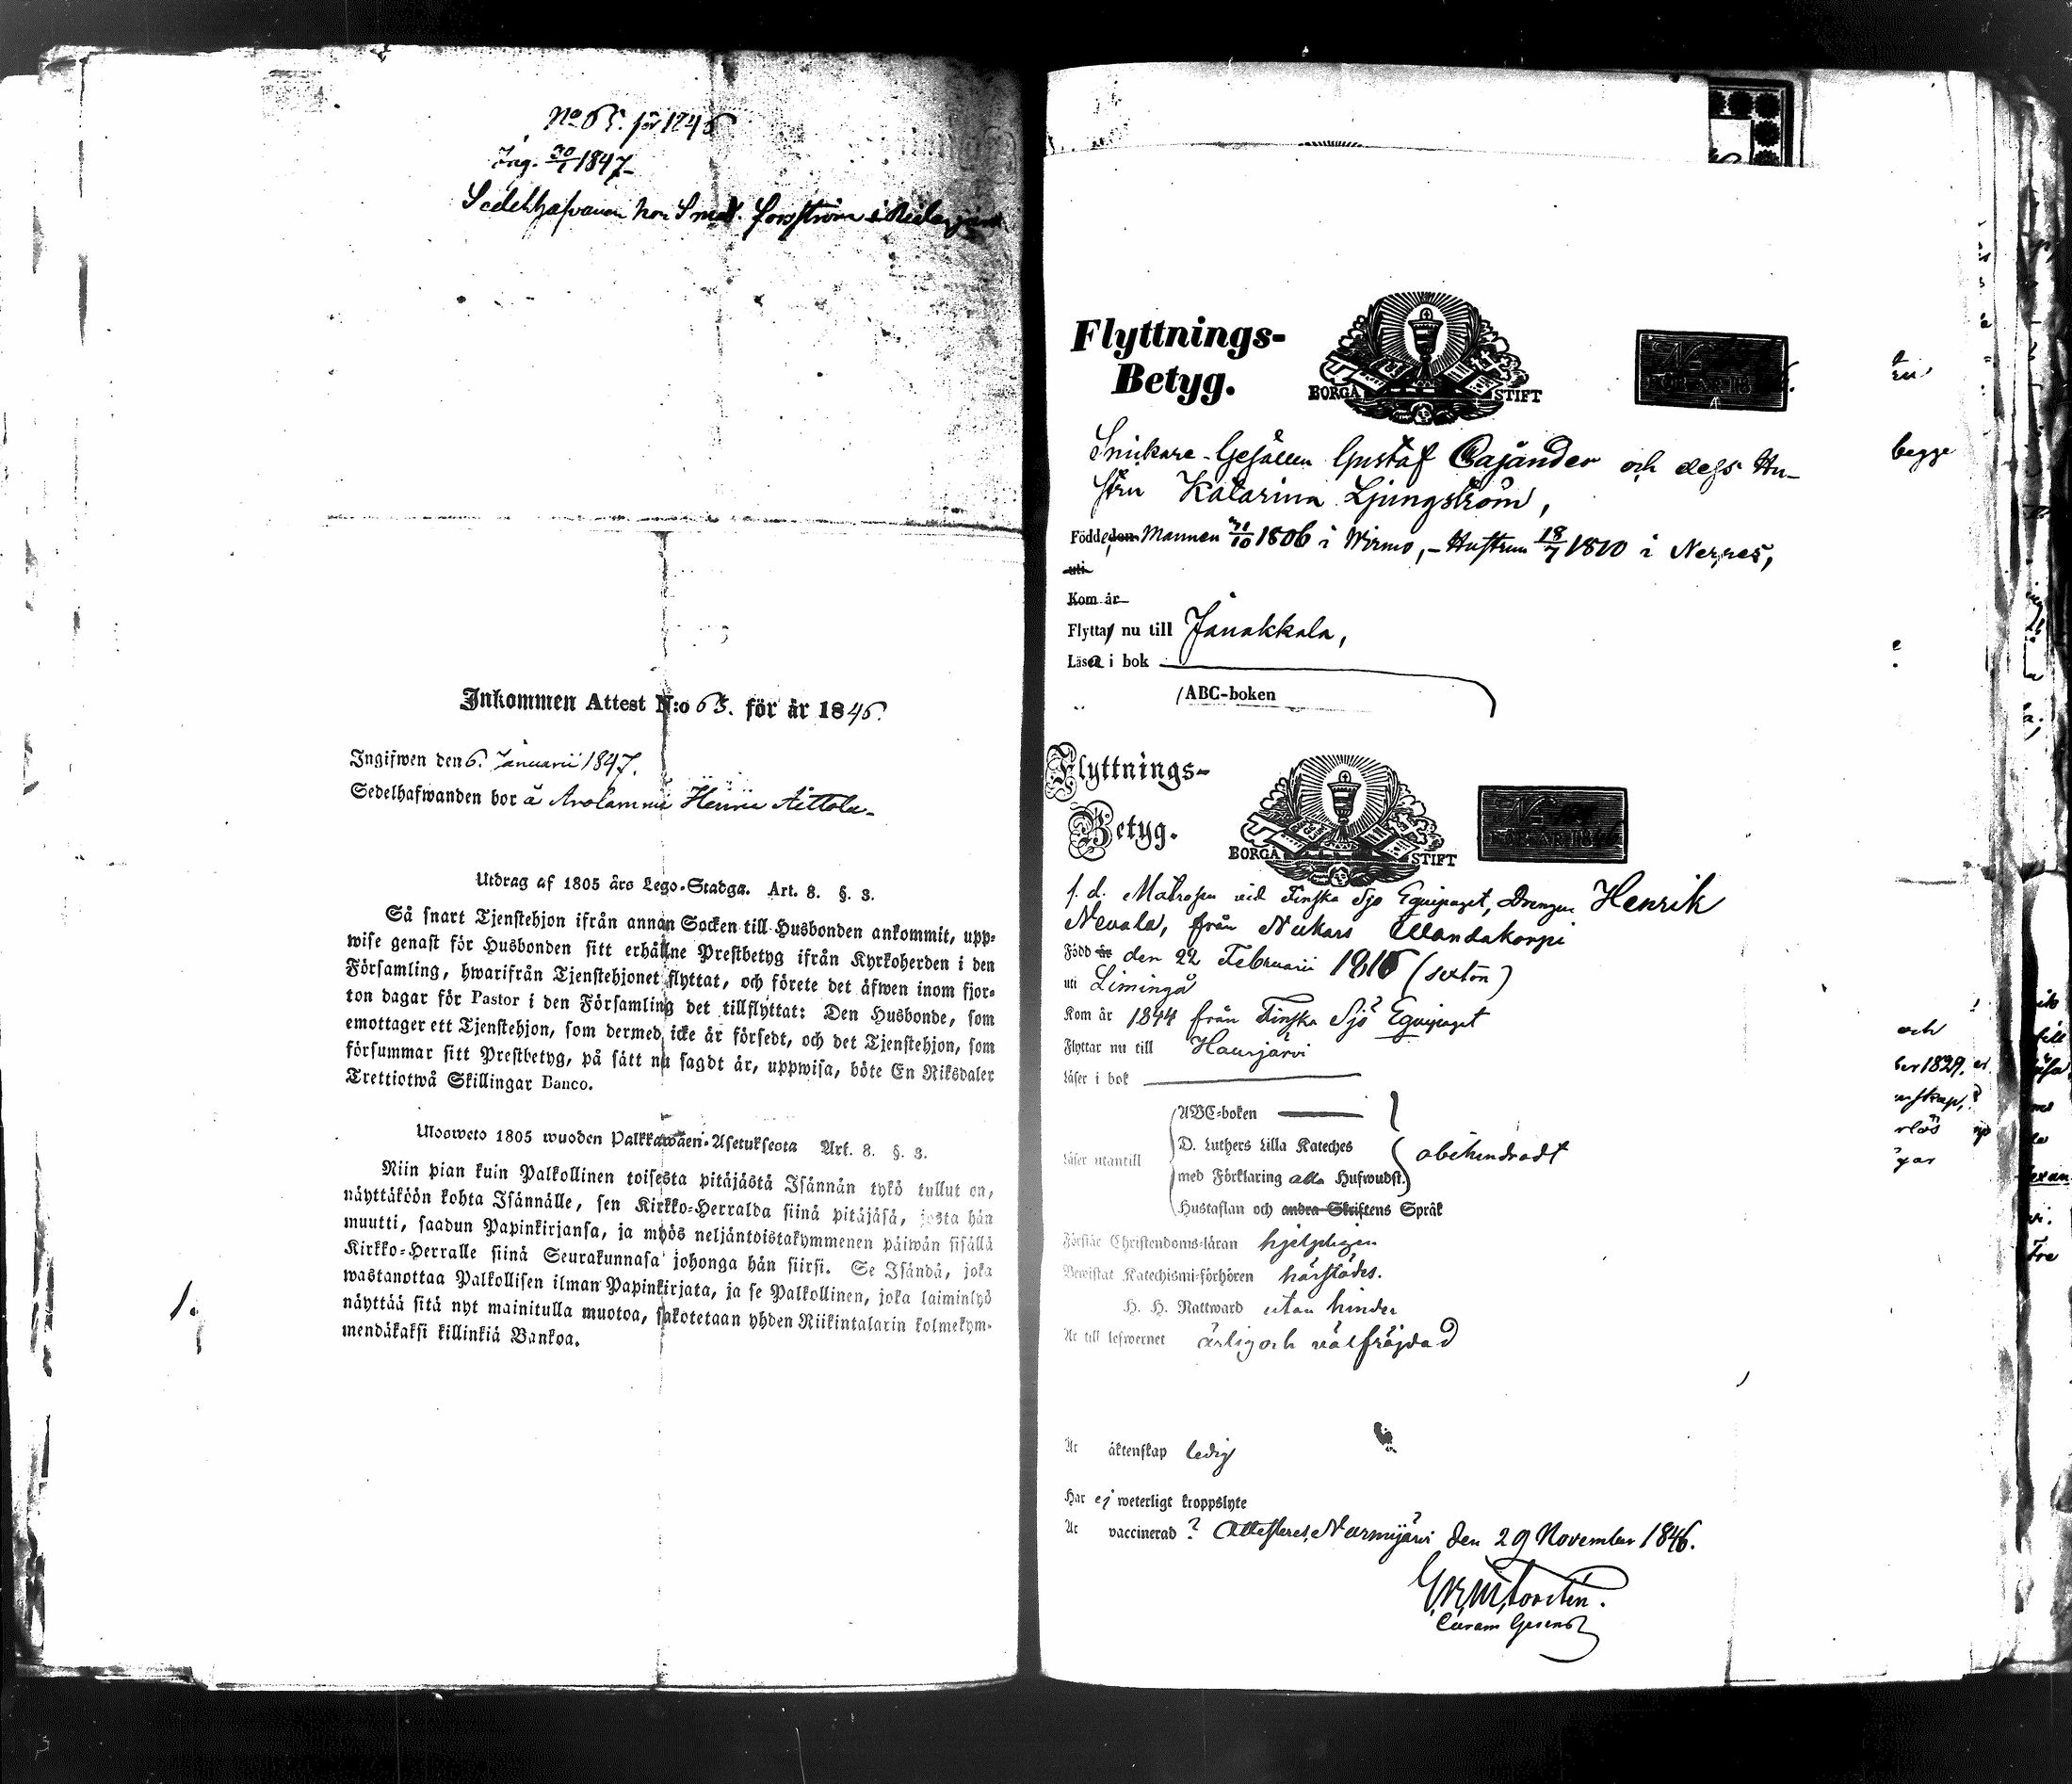 No 65. för 1846
Ing. 30/1 1847
Sedelhafvaren hos Smed. Forsström i
Inkommen Attest N:o 65. för år 1846.
Ingifwen den 6. Januarii 1847.
Sedelhafwanden bor å Arolammi Heinie Aittola
Utdrag af 1805 års Lego-Stadga. Art. 8. §. 3.
Så snart Tjenstehjon ifrån annan Socken till Husbonden ankommit, upp-
wise genast för Husbonden sitt erhållne Prestbetyg ifrån Kyrkoherden i den
Församling, hwarifrån Tjenstehjonet flyttat, och förete det äfwen inom fjor-
ton dagar för Pastor i den Församling det tillflyttat: Den Husbonde, som
emottager ett Tjenstehjon, som dermed icke är försedt, och det Tjenstehjon, som
försummar sitt Prestbetyg, på sätt nu sagdt är, uppwisa, böte En Riksdaler
Trettiotwå Skillingar Banco.
Ulosweto 1805 wuoden Palkkawäen-Asetuksesta Art. 8. §. 3.
Niin pian kuin Palkollinen toisesta pitäjästä Isännän tykö tullut on,
näyttäköön kohta Isännälle, sen Kirkko-Herralda siinä pitäjäsä, josta hän
muutti, saadun Papinkirjansa, ja myös neljäntoistakymmenen päiwän sisällä
Kirkko-Herralle siinä Seurakunnasa johonga hän siirsi. Se Isändä, joka
wastanottaa Palkollisen ilman Papinkirjata, ja se Palkollinen, joka laiminlyö
näyttää sitä nyt mainitulla muotoa, sakotetaan yhden Riikintalarin kolmekym-
mendäkaksi killinkiä Bankoa.
Flyttnings-
Betyg.
BORGÅ STIFT
No
FÖR ÅR 18
Snickare-Gesällen Gustaf Cajander och dess Hu-
stru Katarina Ljungström,
Födde, den Mannen 31/10 1806 i Wirmo, - Hustrun 18/7 1810 i Nerpes,
uti
Kom år
Flytta nu till Janakkala,
Läsa i bok
ABC-boken
Flyttnings-
Betyg.
BORGÅ STIFT
No
FÖR ÅR 1846
f. d. Matrosen vid Finska Sjö Equipaget, Drengen Henrik
Nevala, från Nukars Wandakorpi
Född år den 22 Februarii 1816 (sexton)
uti Limingå
Kom år 1844 från Finska Sjö Equipaget
Flyttar nu till Hausjärvi
Läser i bok
ABC-boken
Läser utantill
D. Luthers Lilla Kateches
med Förklaring alla Hufwudst.
obehindradt
Hustaflan och andra Skriftens Språk
Förstår Christendoms-läran hjelpligen
Bewistat Katechismi-förhören härstädes.
H. H. Nattward utan hinder
Är till lefwernet ärlig och välfräjdad
Är äktenskap ledig
Har ej weterligt kroppslyte
Är vaccinerad ? Attesteras, Nurmijärvi den 29 November 1846.
Curam Gerens
begge
och